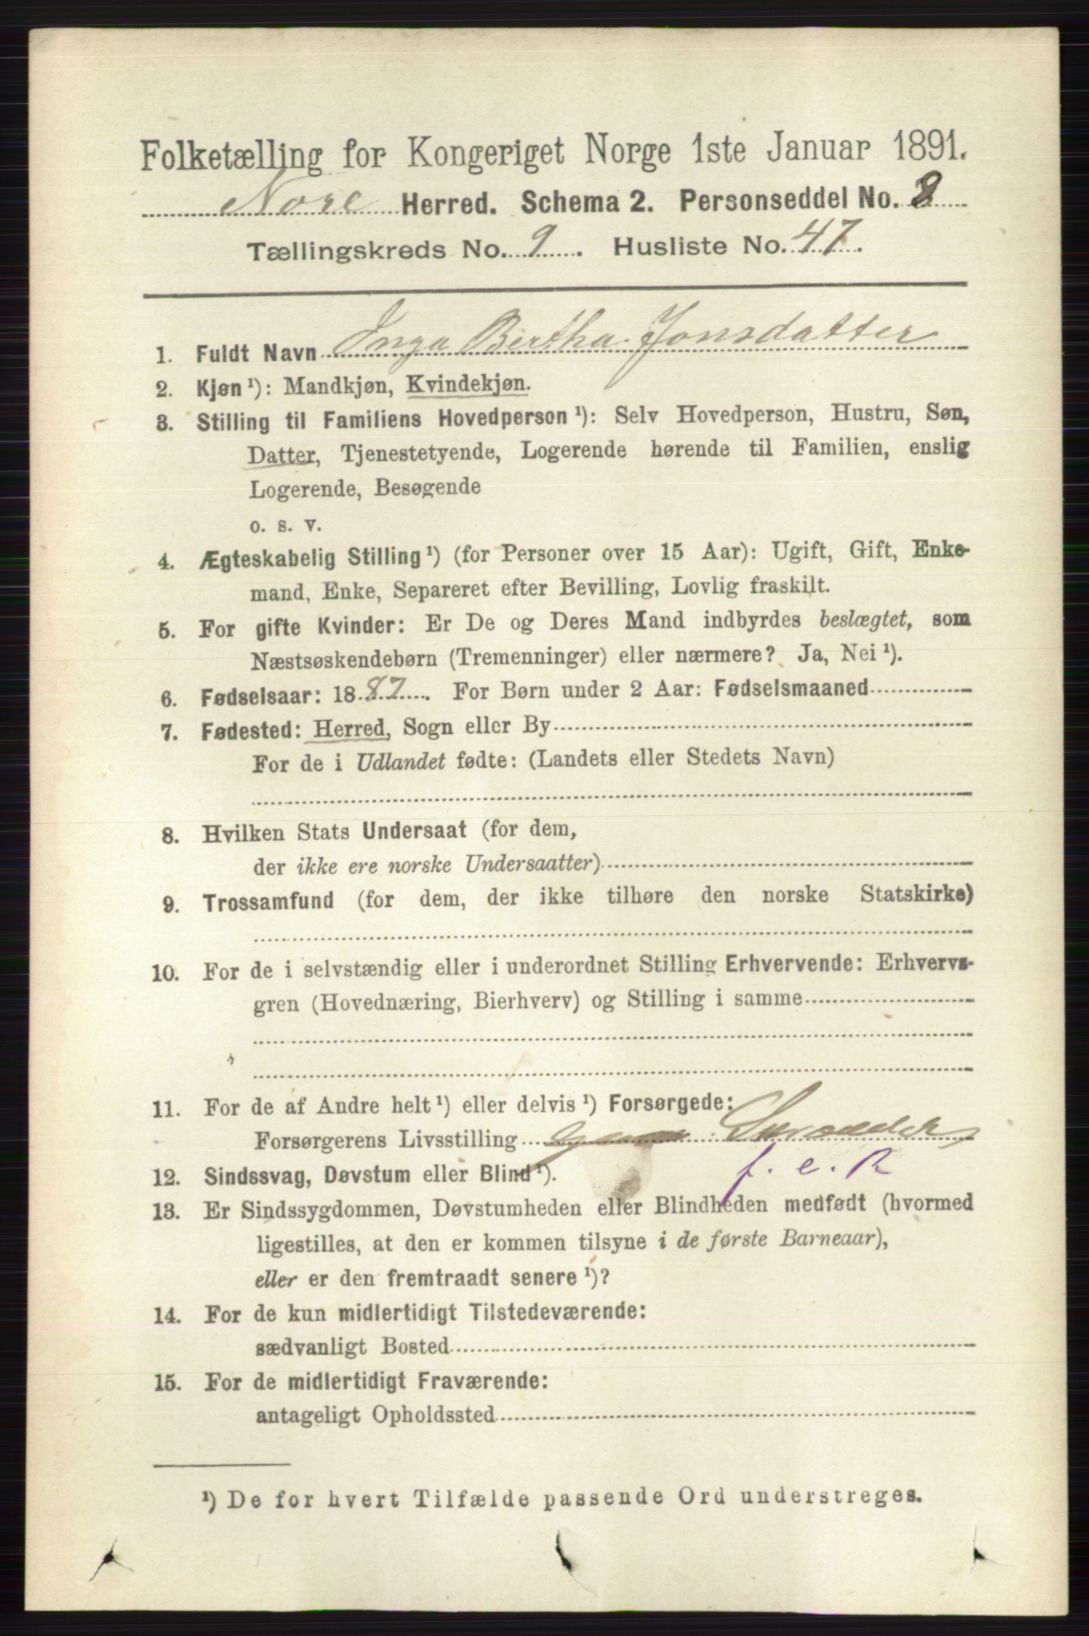 Folketælling for Kongeriget Norge 1ste Januar 1891.
Nore Herred. Schema 2. Personseddel No. 8
Tællingskreds No. 9. Husliste No. 47.
1. Fuldt Navn Inga Bertha Jonsdatter
2. Kjøn ¹): Mandkjøn, Kvindekjøn.
3. Stilling til Familiens Hovedperson ¹): Selv Hovedperson, Hustru, Søn,
Datter, Tjenestetyende, Logerende hørende til Familien, enslig
Logerende, Besøgende
o. s. v.
4. Ægteskabelig Stilling ¹) (for Personer over 15 Aar): Ugift, Gift, Enke-
mand, Enke, Separeret efter Bevilling, Lovlig fraskilt.
5. For gifte Kvinder: Er De og Deres Mand indbyrdes beslægtet, som
Næstsøskendebørn (Tremenninger) eller nærmere? Ja, Nei ¹).
6. Fødselsaar: 1887. For Børn under 2 Aar: Fødselsmaaned
7. Fødested: Herred, Sogn eller By
For de i Udlandet fødte: (Landets eller Stedets Navn)
8. Hvilken Stats Undersaat (for dem,
der ikke ere norske Undersaatter)
9. Trossamfund (for dem, der ikke tilhøre den norske Statskirke)
10. For de i selvstændig eller i underordnet Stilling Erhvervende: Erhvervs-
gren (Hovednæring, Bierhverv) og Stilling i samme
11. For de af Andre helt ¹) eller delvis ¹) Forsørgede:
Forsørgerens Livsstilling
f. e. R
12. Sindssvag, Døvstum eller Blind ¹).
13. Er Sindssygdommen, Døvstumheden eller Blindheden medfødt (hvormed
ligestilles, at den er kommen tilsyne i de første Barneaar),
eller er den fremtraadt senere ¹)?
14. For de kun midlertidigt Tilstedeværende:
sædvanligt Bosted
15. For de midlertidigt Fraværende:
antageligt Opholdssted
¹) De for hvert Tilfælde passende Ord understreges.